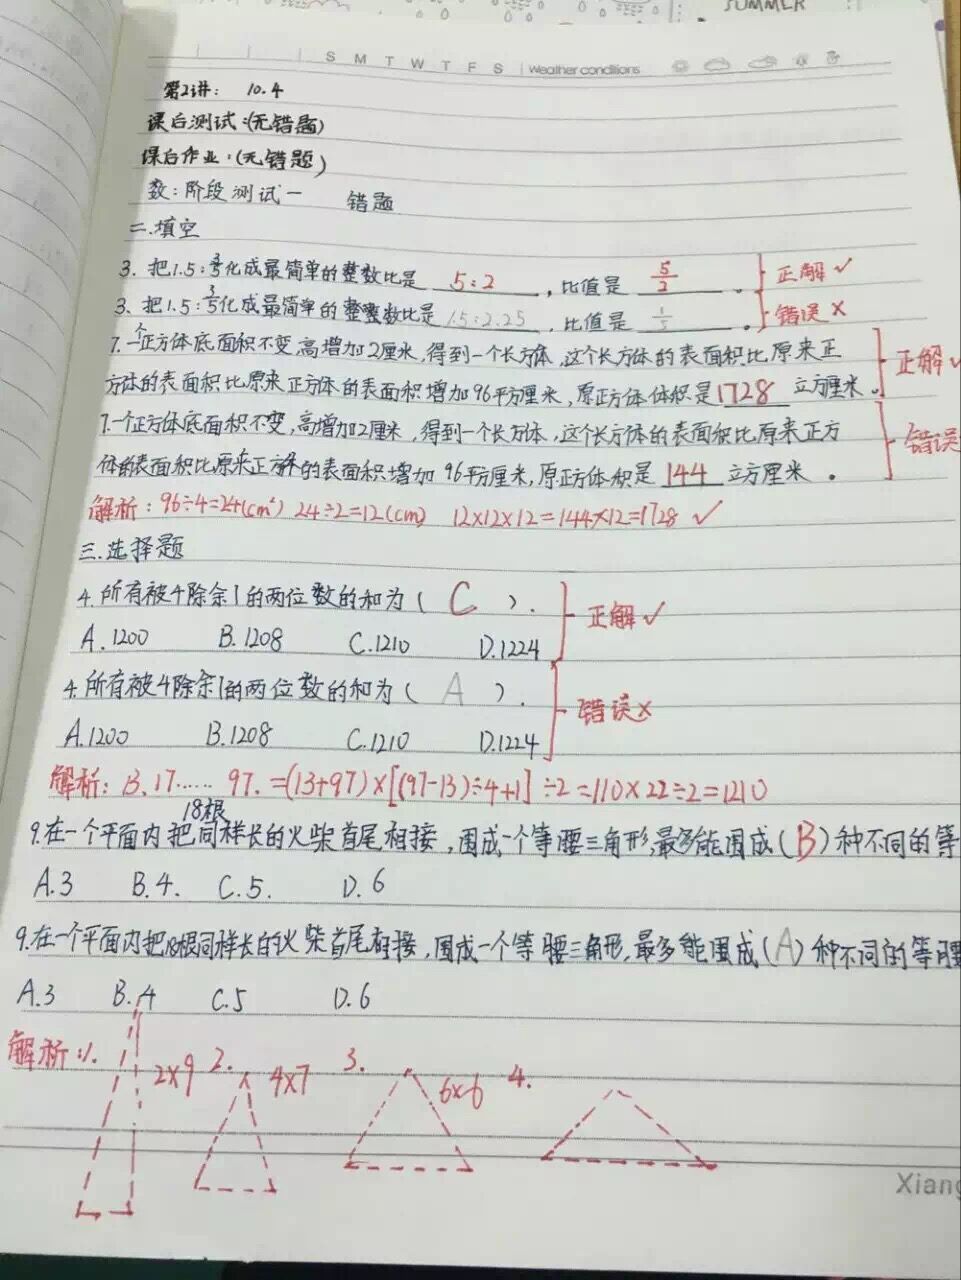 SUMMER
S M T W T F S Weather conditions
第2讲： 10.4
课后测试：(无错题)
课后作业：(无错题)
数：阶段测试一 错题
二.填空
3. 把1.5：3/5化成最简单的整数比是 5:2 ，比值是 5/2 。 正解 ✓
3、把1.5：3/5化成最简单的整数比是 1.5:2.25 ，比值是 。 错误 ×
7.一个正方体底面积不变,高增加2厘米,得到一个长方体,这个长方体的表面积比原来正
方体的表面积比原来正方体的表面积增加96平方厘米,原正方体体积是1728立方厘米。 正解 ✓
7.一个正方体底面积不变,高增加2厘米,得到一个长方体,这个长方体的表面积比原来正方
体的表面积比原来正方体的表面积增加96平方厘米,原正方体积是144立方厘米。 错误
解析：96÷4=24(cm²) 24÷2=12(cm) 12×12×12=144×12=1728 ✓
三.选择题
4.所有被4除余1的两位数的和为( C ). 正解 ✓
A.1200 B.1208 C.1210 D.1224
4.所有被4除余1的两位数的和为( A ). 错误×
A.1200 B.1208 C.1210 D.1224
解析：13.17…… 97. =(13+97)×[(97-13)÷4+1]÷2=110×22÷2=1210
9.在一个平面内把18根同样长的火柴首尾相接,围成一个等腰三角形,最多能围成(B)种不同的等
A.3 B.4. C.5. D.6
9.在一个平面内把18根同样长的火柴首尾相接,围成一个等腰三角形,最多能围成(A)种不同的等腰
A.3 B.4 C.5 D.6
解析：1. 2×9 2. 4×7 3. 6×6 4.
Xiang